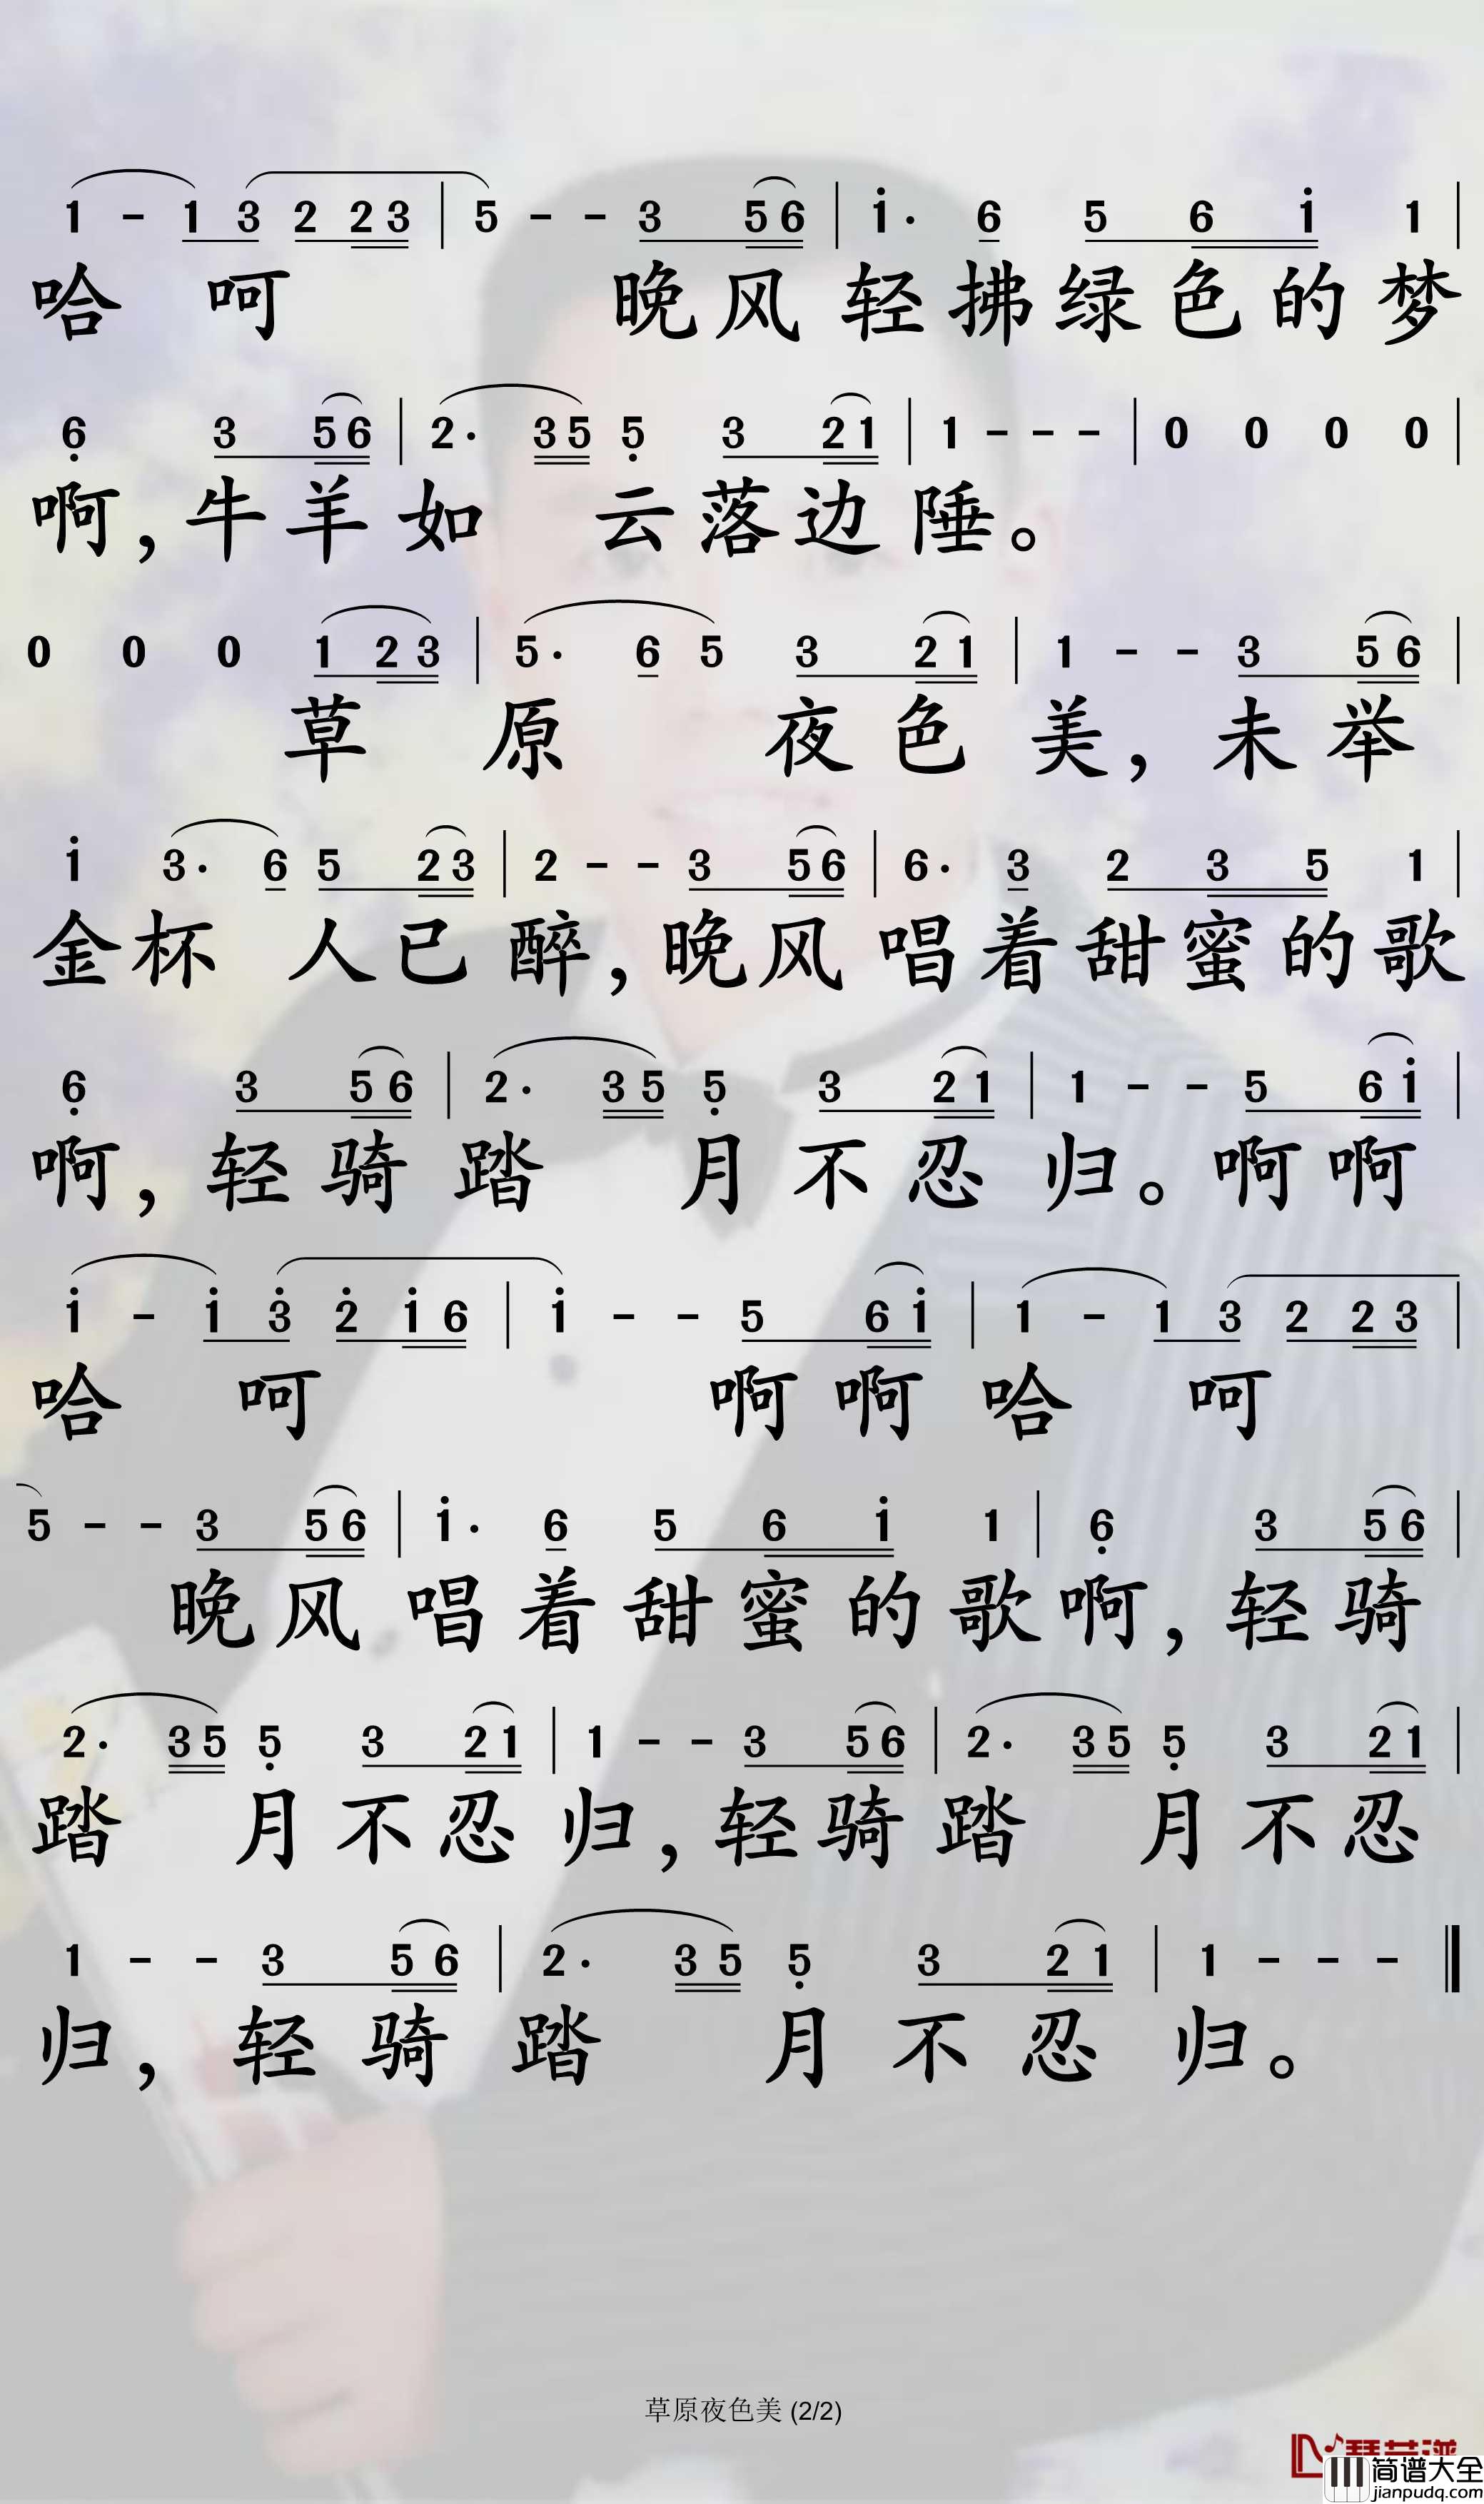 1 - 1 3 2 2 3 | 5 - - 3 5 6 | i · 6 5 6 i 1 |
哈 呵 晚 风 轻 拂 绿 色 的 梦
6̣ 3 5 6 | 2 · 3 5 5̣ 3 2 1 | 1 - - - | 0 0 0 0 |
啊, 牛 羊 如 云 落 边 陲。
0 0 0 1 2 3 | 5 · 6 5 3 2 1 | 1 - - 3 5 6 |
草 原 夜 色 美, 未 举
i 3 · 6 5 2 3 | 2 - - 3 5 6 | 6 · 3 2 3 5 1 |
金 杯 人 已 醉, 晚 风 唱 着 甜 蜜 的 歌
6̣ 3 5 6 | 2 · 3 5 5̣ 3 2 1 | 1 - - 5 6 i |
啊, 轻 骑 踏 月 不 忍 归。 啊 啊
i - i 3̇ 2̇ i 6 | i - - 5 6 i | 1 - 1 3 2 2 3 |
哈 呵 啊 啊 哈 呵
5 - - 3 5 6 | i · 6 5 6 i 1 | 6̣ 3 5 6 |
晚 风 唱 着 甜 蜜 的 歌 啊, 轻 骑
2 · 3 5 5̣ 3 2 1 | 1 - - 3 5 6 | 2 · 3 5 5̣ 3 2 1 |
踏 月 不 忍 归, 轻 骑 踏 月 不 忍
1 - - 3 5 6 | 2 · 3 5 5̣ 3 2 1 | 1 - - - ‖
归, 轻 骑 踏 月 不 忍 归。
草原夜色美 (2/2)
简谱大全
jianpudq.com